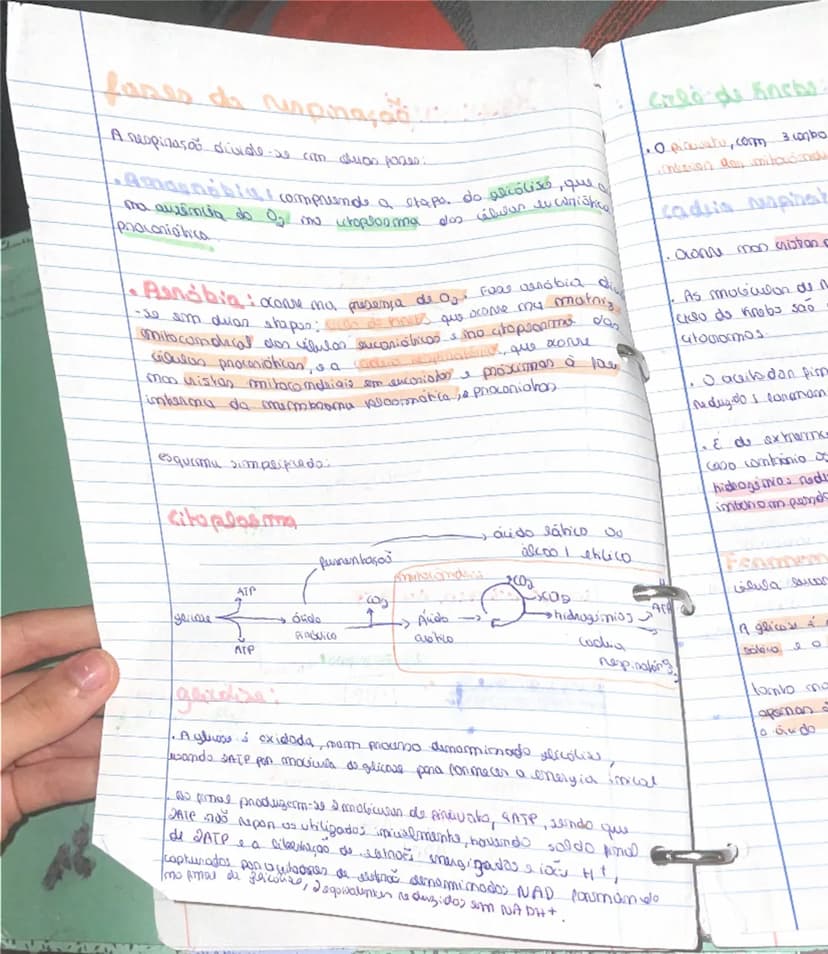 fases da respiração
A respiração divide-se em duas fases:
. Anaeróbia: compreende a etapa da glicólise, que a
na ausência do O2 no citoplasma das células eucariótica
procariótica.
. Aeróbia: ocorre na presença de O2. Fase aeróbia di
-se em duas etapas: ciclo de Krebs que ocorre na matriz
mitocondrial das células eucarióticas e no citoplasma das
células procarióticas, e a cadeia respiratória, que ocorre
nas cristas mitocondriais em eucariotos e próximas à face
interna da membrana plasmática, procariotos
esquema simplificado:
citoplasma
ácido lático ou
álcool etílico
fermentação
mitocôndria
glicose
ATP
ATP
ácido
pirúvico
CO2
Ácido
acético
CO2
CO2
hidrogênios
ATP
cadeia
respiratória
glicólise:
. A glicose é oxidada, num processo denominado glicólise,
usando 2ATP por molécula de glicose para fornecer a energia inicial
. ao final produzem-se 2 moléculas de Piruvato, 4ATP, sendo que
2ATP são repor os utilizados inicialmente, havendo saldo final
de 2ATP e a liberação de elétrons energizados e íons H+,
capturados por de elétrons denominados NAD formando
no final da glicólise, 2 equivalentes reduzidos em NADH+.
ciclo de Krebs:
. O piruvato, com 3 carbo
cadeia respirat
. Ocorre nas cristas
. As moléculas de N
ciclo de Krebs são
citocromos
. O
. É de extrema
caso contrário os
hidrogênios redu
Fermen
célula
A glicose é
lático e o
tanto no
apenas
o ácido